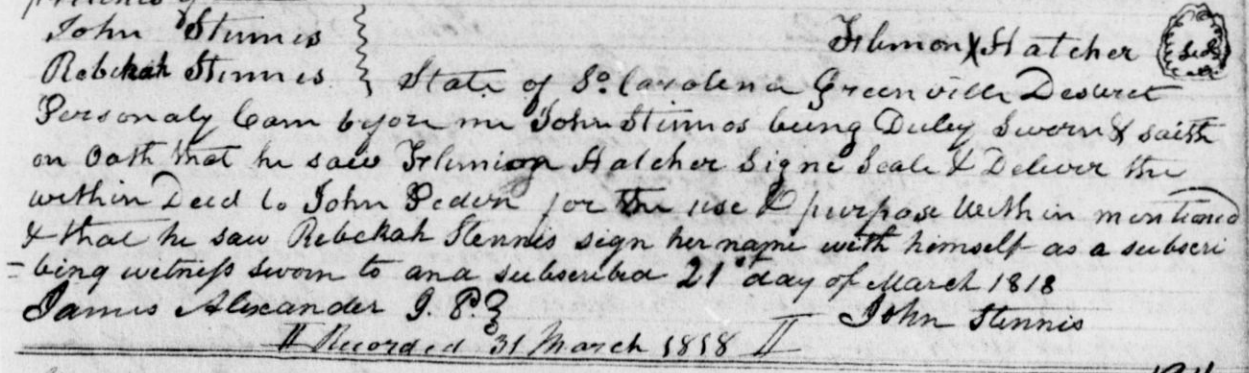 presence of
John Stennis
Rebekah Stennis } Filmon X Hatcher Seal
State of So. Carolena Greenville Destrect
Personaly Cam before me John Stinnos being Duley Sworn & saith
on Oath that he saw Filmion Hatcher Signe Seale & Deliver the
within Deed to John Peden for the use & purpose Within mentioned
& that he saw Rebekah Stennis sign her name with himself as a subscri
=being witness sworn to and subscribed 21st day of March 1818
James Alexander J. P. } John Stennis
Recorded 31 March 1818